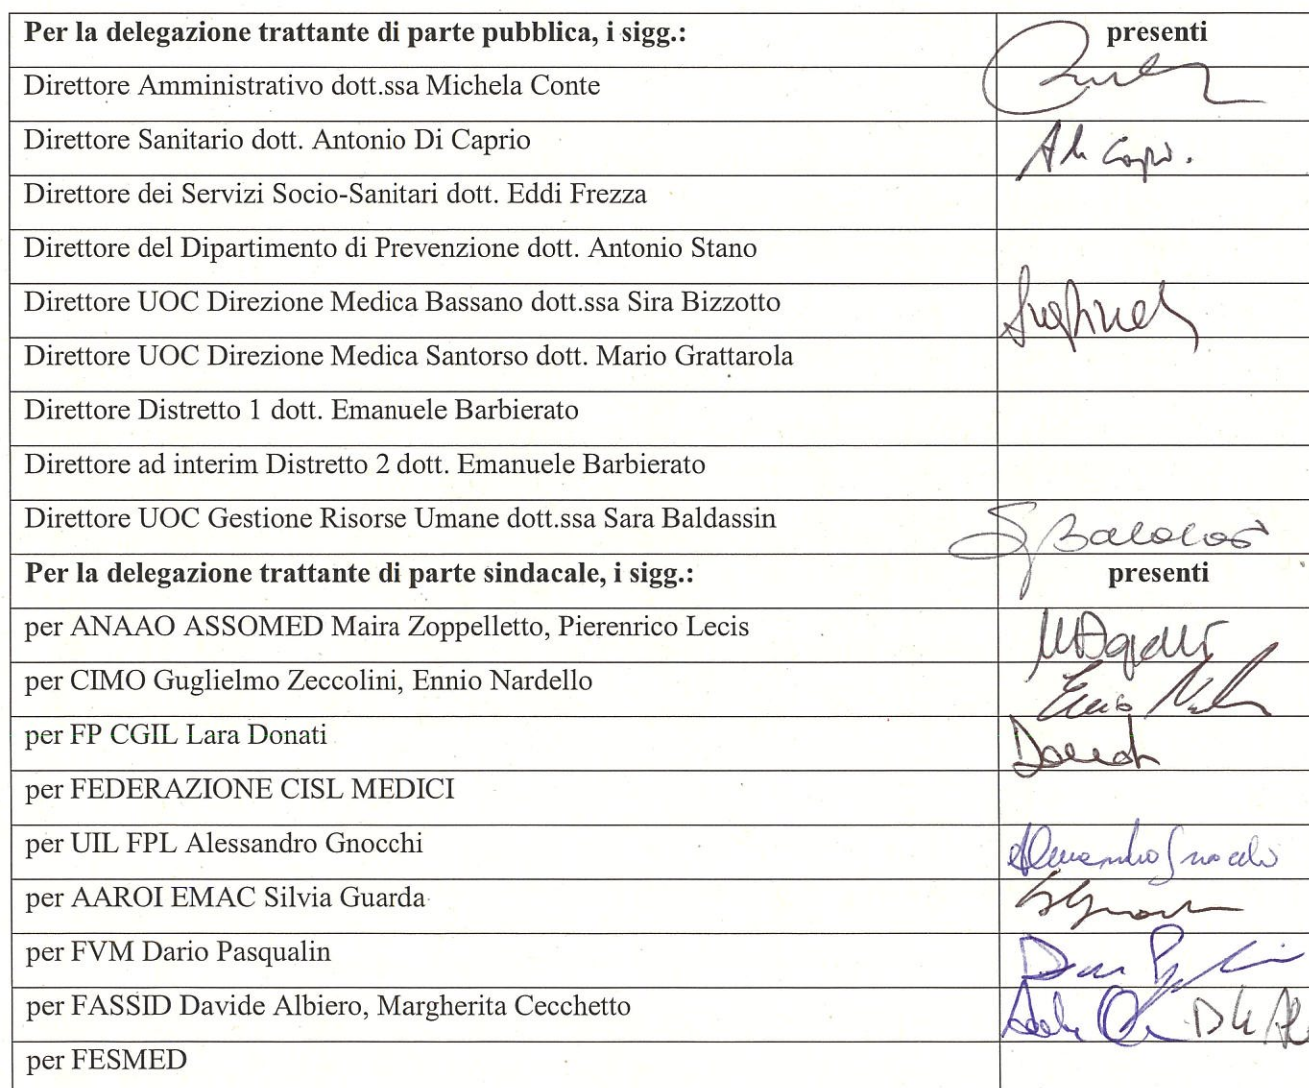 Per la delegazione trattante di parte pubblica, i sigg.: presenti
Direttore Amministrativo dott.ssa Michela Conte
Direttore Sanitario dott. Antonio Di Caprio
Direttore dei Servizi Socio-Sanitari dott. Eddi Frezza
Direttore del Dipartimento di Prevenzione dott. Antonio Stano
Direttore UOC Direzione Medica Bassano dott.ssa Sira Bizzotto
Direttore UOC Direzione Medica Santorso dott. Mario Grattarola
Direttore Distretto 1 dott. Emanuele Barbierato
Direttore ad interim Distretto 2 dott. Emanuele Barbierato
Direttore UOC Gestione Risorse Umane dott.ssa Sara Baldassin
Per la delegazione trattante di parte sindacale, i sigg.: presenti
per ANAAO ASSOMED Maira Zoppelletto, Pierenrico Lecis
per CIMO Guglielmo Zeccolini, Ennio Nardello
per FP CGIL Lara Donati
per FEDERAZIONE CISL MEDICI
per UIL FPL Alessandro Gnocchi
per AAROI EMAC Silvia Guarda
per FVM Dario Pasqualin
per FASSID Davide Albiero, Margherita Cecchetto
per FESMED